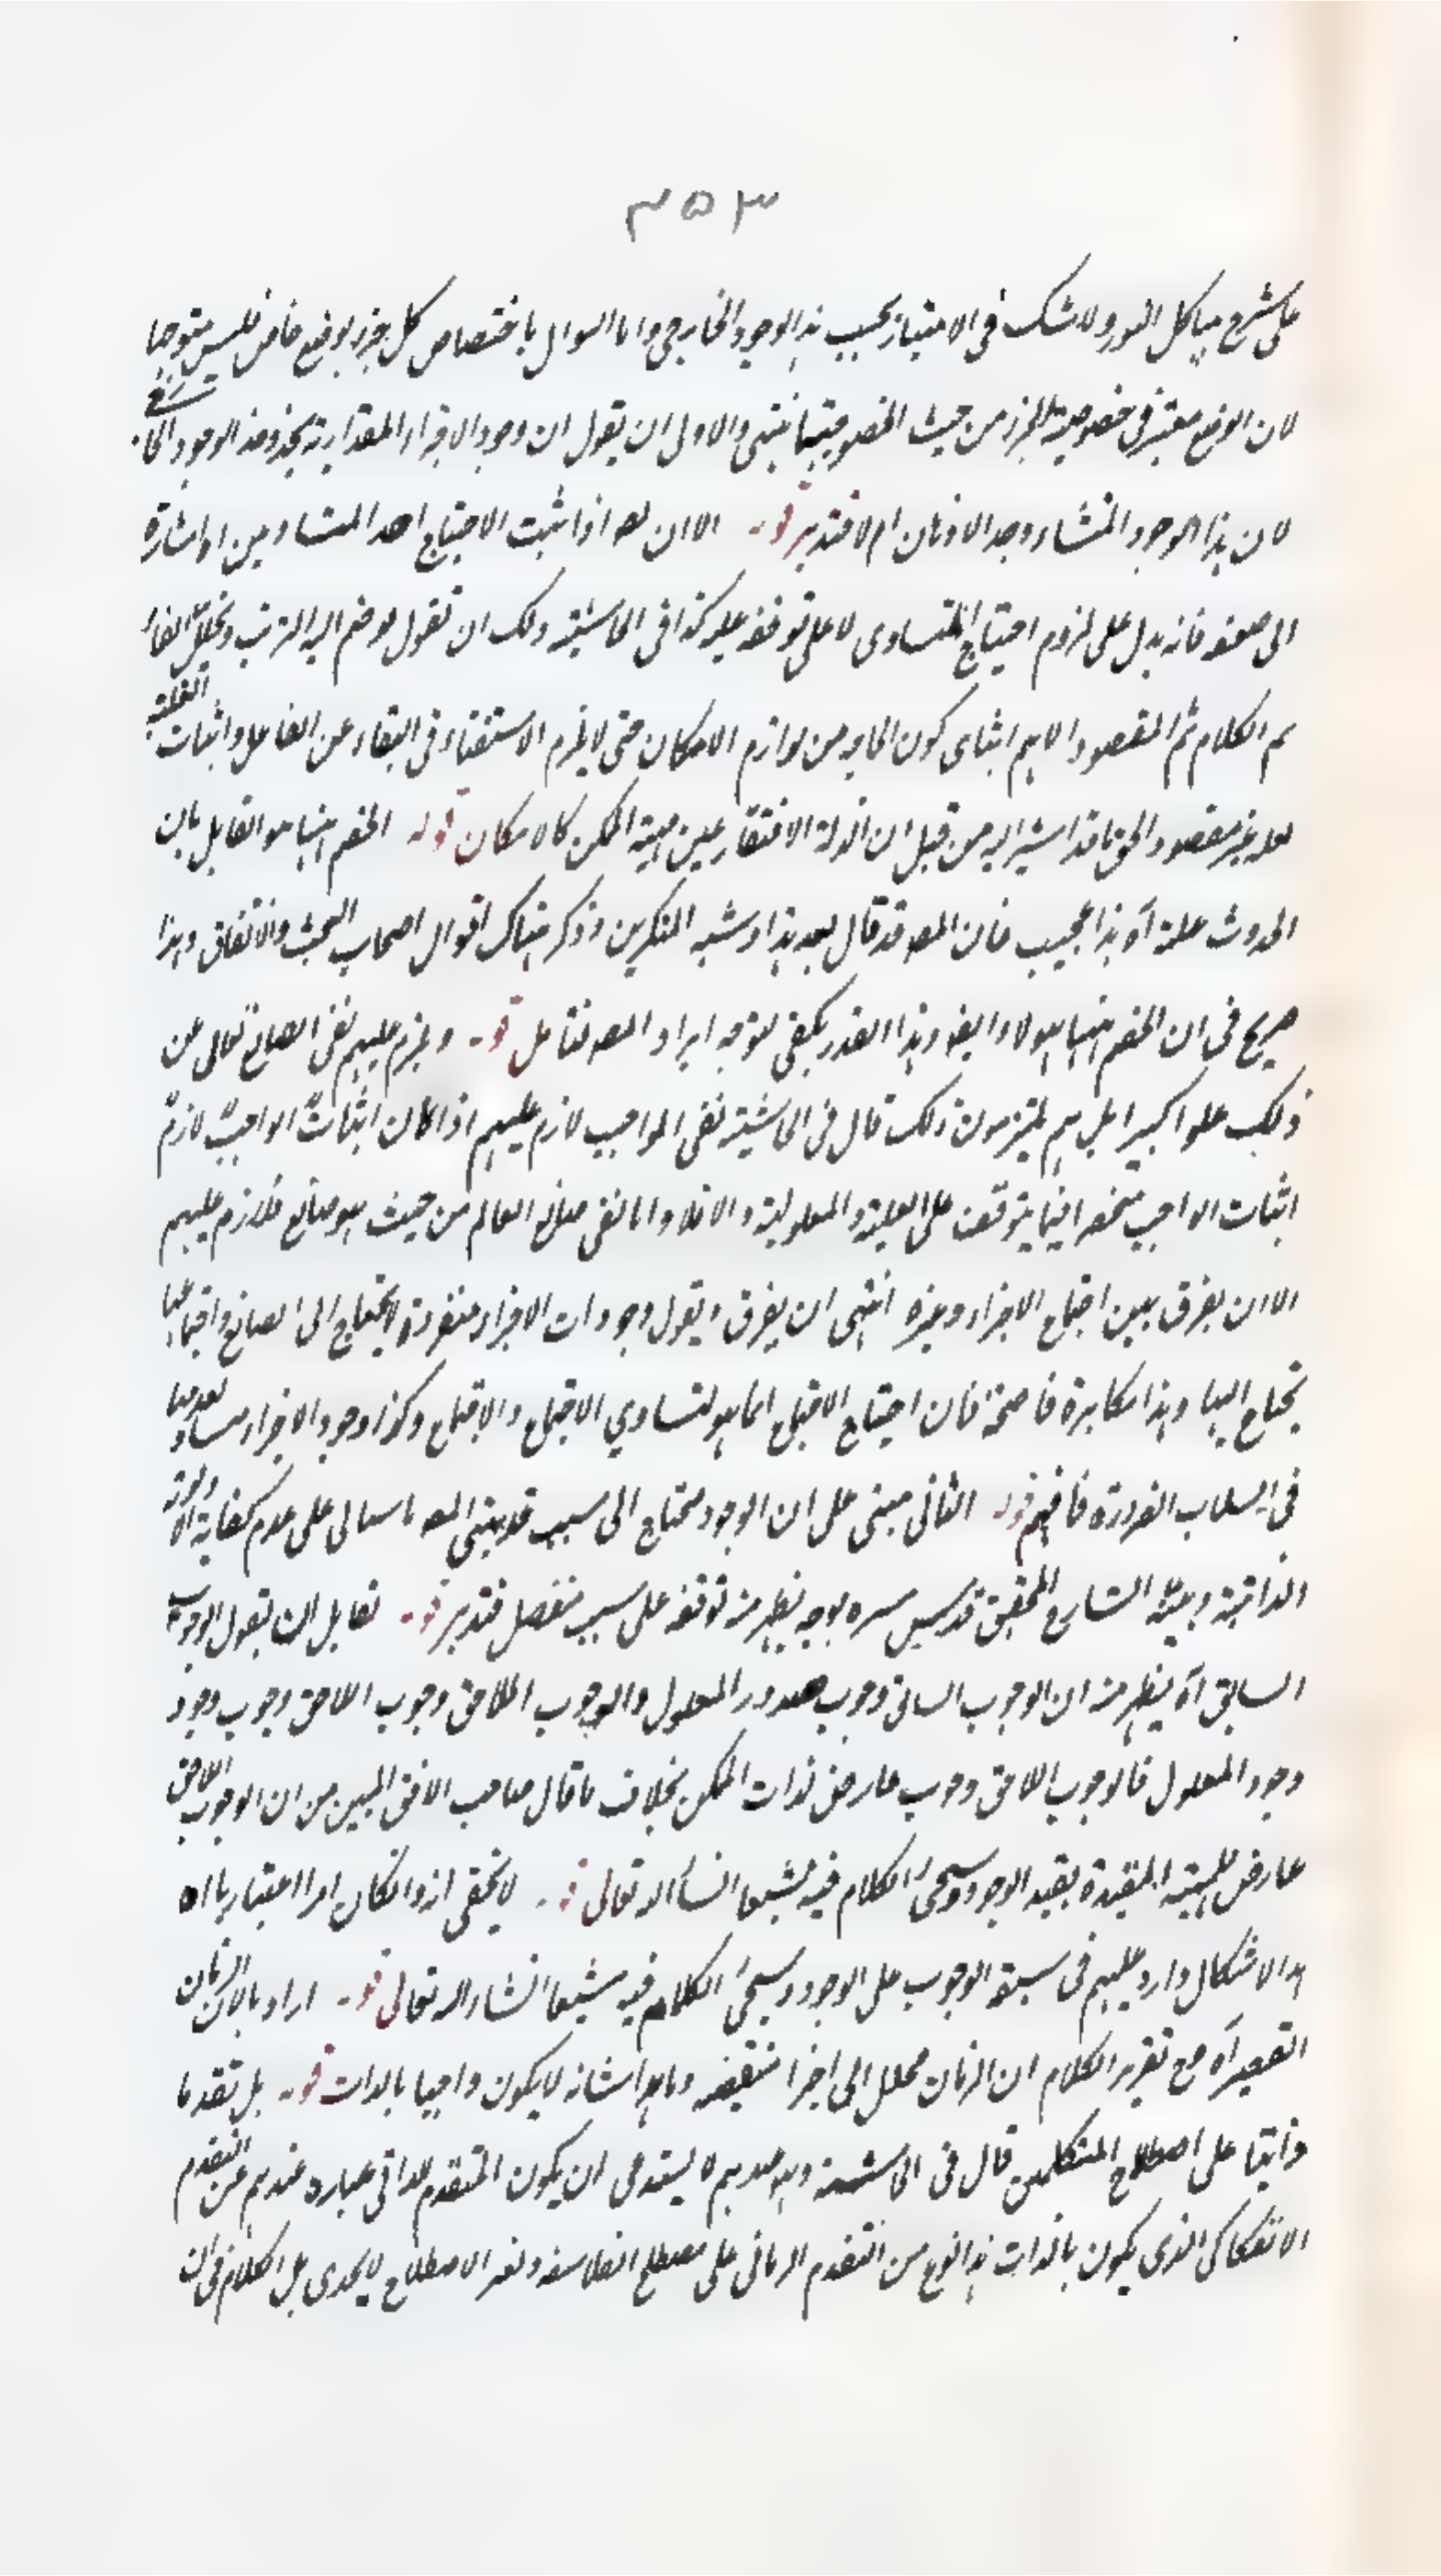 ٣٥٣
على شرح هياكل النور ولا شك في الامتياز بحسب هذا الوجود الخارجي واما السوال باختصاص كل جزء بوضع خاص فليس متوجها
لان الوضع معتبر في خصوصية الجزء من حيث الخصوصية انتهى والاولى ان يقول ان وجود الاجزاء المقدارية يحذو حذو الوجود الخا
لان هذا الوجود المنشاء وجد الاذهان ام لا فتدبر قوله الا ان له اذا ثبت الاحتياج احد المتساويين اه اشارة
الى ضعفه فانه يدل على لزوم احتياج المتساوى لا على توقفه عليه كذا في الحاشية ولك ان تقول هو ضم اليه الترتب وتخلل الفاء
تم الكلام ثم المقصود الاهم اثبات كون الحاجة من لوازم الامكان حتى لا يلزم الاستغناء في البقاء عن الفاعل واثبات العلية
له غير مقصود الحق ما قد اشير اليه من قبل ان الذلة الافتقار عين مهية الممكن كالامكان قوله الخصم ههنا هو القايل بان
الحدوث علة آه هذا عجيب فان المصه قد قال بعد هذا وشبه المنكرين وذكر هناك اقوال اصحاب البخت والاتفاق وهذا
صريح في ان الخصم ههنا هولاء ايضا وهذا القدر يكفى لتوجه ايراد المصه فتامل قوله ويلزم عليهم نفى الصانع تعالى عن
ذلك علوا كبيرا بل هم يلتزمون ذلك قال في الحاشية نفى الواجب لازم عليهم اذا كان اثبات الواجب لازم
اثبات الواجب منحصرا فيما يتوقف على العلية والمعلولية والا فلا واما نفى صانع العالم من حيث هو صانع فلازم عليهم
الا ان يفرق بين اجتماع الاجزاء وغيره انتهى ان يفرق ويقول وجودات الاجزاء منفردة لا يحتاج الى الصانع واجتماعها
يحتاج اليها وهذا مكابرة فاضحة فان احتياج الاجتماع انما هو لتساوي الاجتماع والاجتماع وكذا وجود الاجزاء مساو لعدمها
في السلاب الضرورة فافهم قوله الثاني مبنى على ان الوجود محتاج الى سبب قد بينه المصه على عدم كفاية الاولوية
الذاتية وبينه الشارح المحقق قدس سره بوجه يظهر منه توقفه على سبب منفصل فتدبر قوله لقايل ان يقول الوجوب
السابق آه يظهر منه ان الوجوب السابق وجوب صدور المعلول والوجوب اللاحق وجوب اللاحق وجوب وجود
وجود المعلول فالوجوب اللاحق وجوب عارض لذات الممكن بخلاف ما قال صاحب الافق المبين من ان الوجوب اللاحق
عارض للمهية المقيدة بقيد الوجود وسيجئ الكلام فيه مشبعا انشاء الله تعالى قوله لا يخفى انه وانكان امرا اعتباريا اه
هذا الاشكال وارد عليهم في سبق الوجوب على الوجود وسيجئ الكلام فيه مشبعا انشاء الله تعالى قوله اراد بالان الزمان
القصير آه مع تقرير الكلام ان الزمان محلل الى اجزا منقضية وما هذا شانه لا يكون واجبا بالذات قوله بل تقدما
ذاتيا على اصطلاح المتكلمين قال في الحاشية وهو عندهم لا يستدعى ان يكون المتقدم الذاتى عبارة عندهم عن التقدم
الانفكاكى الذى يكون بالذات هذا نوع من التقدم الزمانى على مصطلح الفلاسفة وتغير الاصطلاح لا يجدى بل الكلام في ان